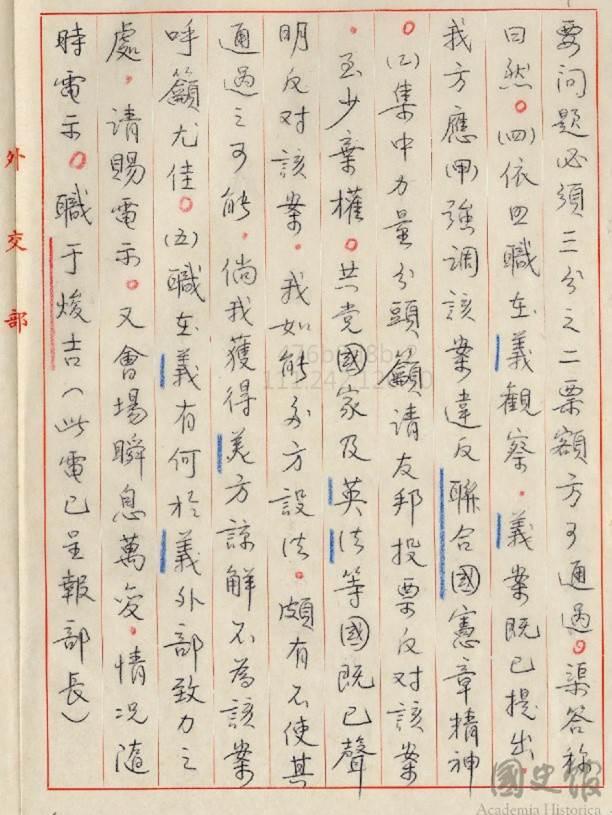 要问题必須三分之二票額方可通過。渠答称
曰然。(四)依照職在義觀察，義案既已提出，
我方應(甲)強調該案違反聯合國憲章精神
。(乙)集中力量分頭籲請友邦投票反对該案
，至少棄權。共党國家及英法等國既已聲
明反对該案，我如能多方設法，頗有不使其
通過之可能，倘我獲得美方諒解不為該案
呼籲尤佳。(五)職在義有何於義外部致力之
處，請賜電示。又會場瞬息萬变，情况隨
時電示。職于焌吉(此電已呈報部長)
外交部
國史館
Academia Historica